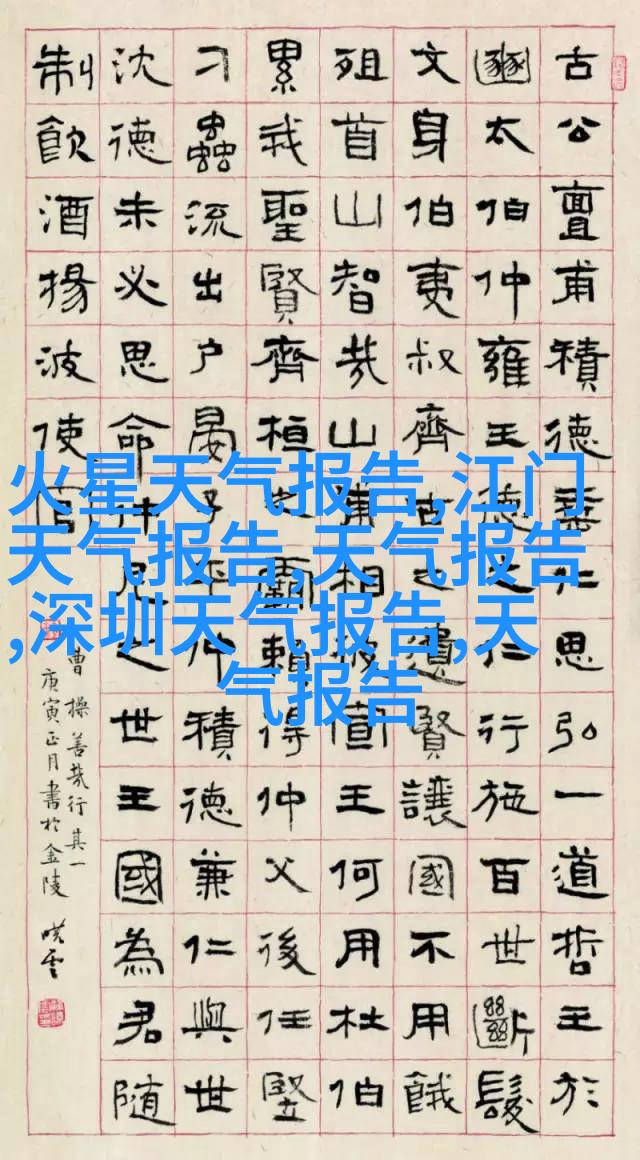 火星天气报告,江门
天气报告,天气报告
,深圳天气报告,天
气报告
古公亶甫積德垂仁思弘一道哲王於
豳太伯仲雍王德之仁行施百世斷髮
文身伯夷叔齊古之遺賢讓國不用餓
殂首山智哉山甫相彼宣王何用杜伯
累我聖賢齊桓之霸賴得仲父後任豎
刁蟲流出户晏子平仲積德兼仁與世
沈德未必思命仲尼之世王國為君隨
制飲酒揚波使官
曹操善哉行其一
庚寅正月書於金陵